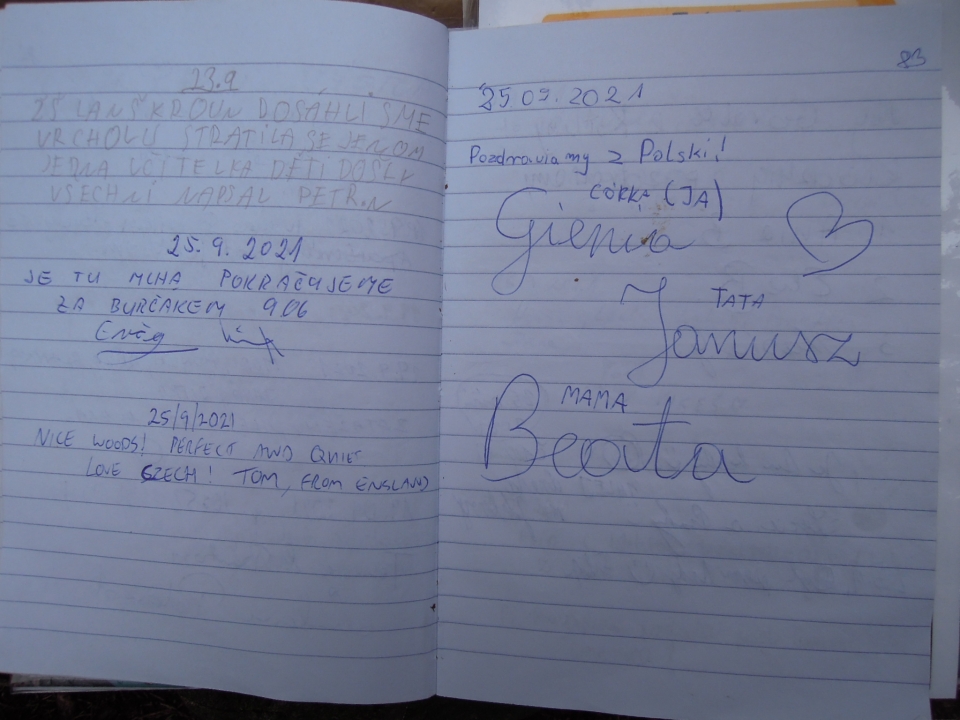 23.9
ZŠ LANŠKROUN DOSÁHLI SME
VRCHOLU STRATILA SE JENOM
JEDNA UČITELKA DĚTI DOŠLY
VŠECHNI NAPSAL PETR.N
25.9.2021
JE TU MLHA POKRAČUJEME
ZA BURČÁKEM 906
25/9/2021
NICE WOODS! PERFECT AND QUIET
LOVE CZECH! TOM, FROM ENGLAND
83
25.09.2021
Pozdrawiamy z Polski!
CÓRKA (JA)
Gienia
TATA
Janusz
MAMA
Beata